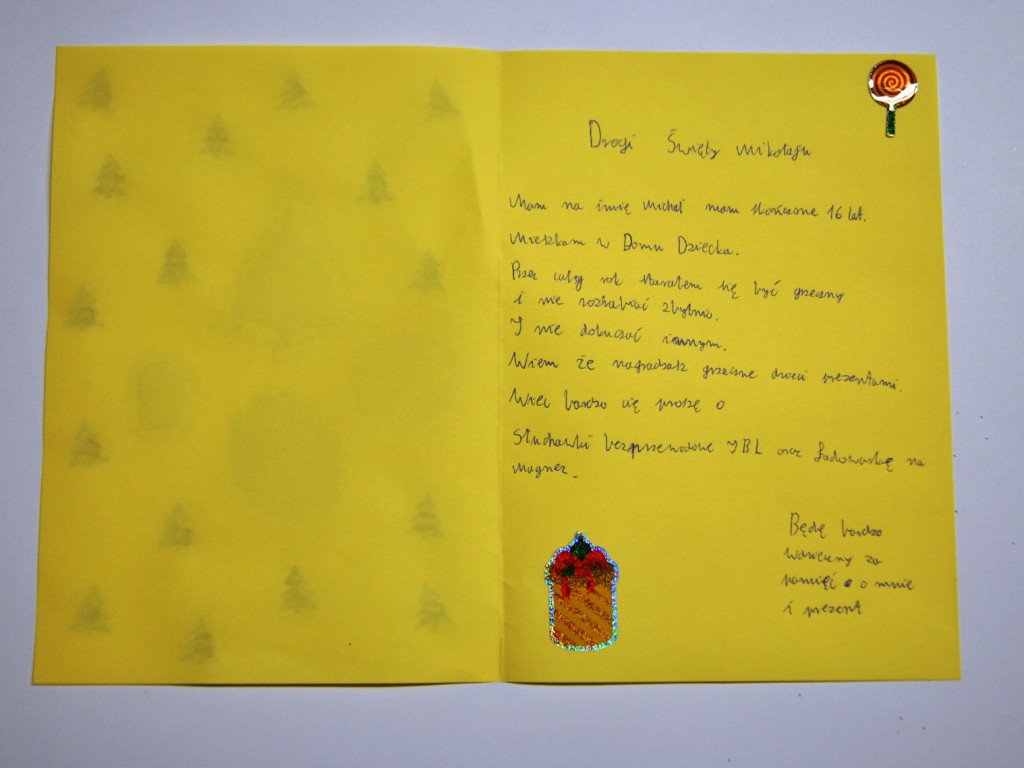 Drogi Święty Mikołaju
Mam na imię Michał mam skończone 16 lat.
Mieszkam w Domu Dziecka.
Przez cały rok starałem się być grzeczny
i nie rozrabiać zbytnio.
I nie dokuczać innym.
Wiem że nagradzasz grzeczne dzieci prezentami.
Więc bardzo cię proszę o
Słuchawki bezprzewodowe JBL oraz Ładowarkę na
magnez.
Będę bardzo
wdzięczny za
pamięć o mnie
i prezent